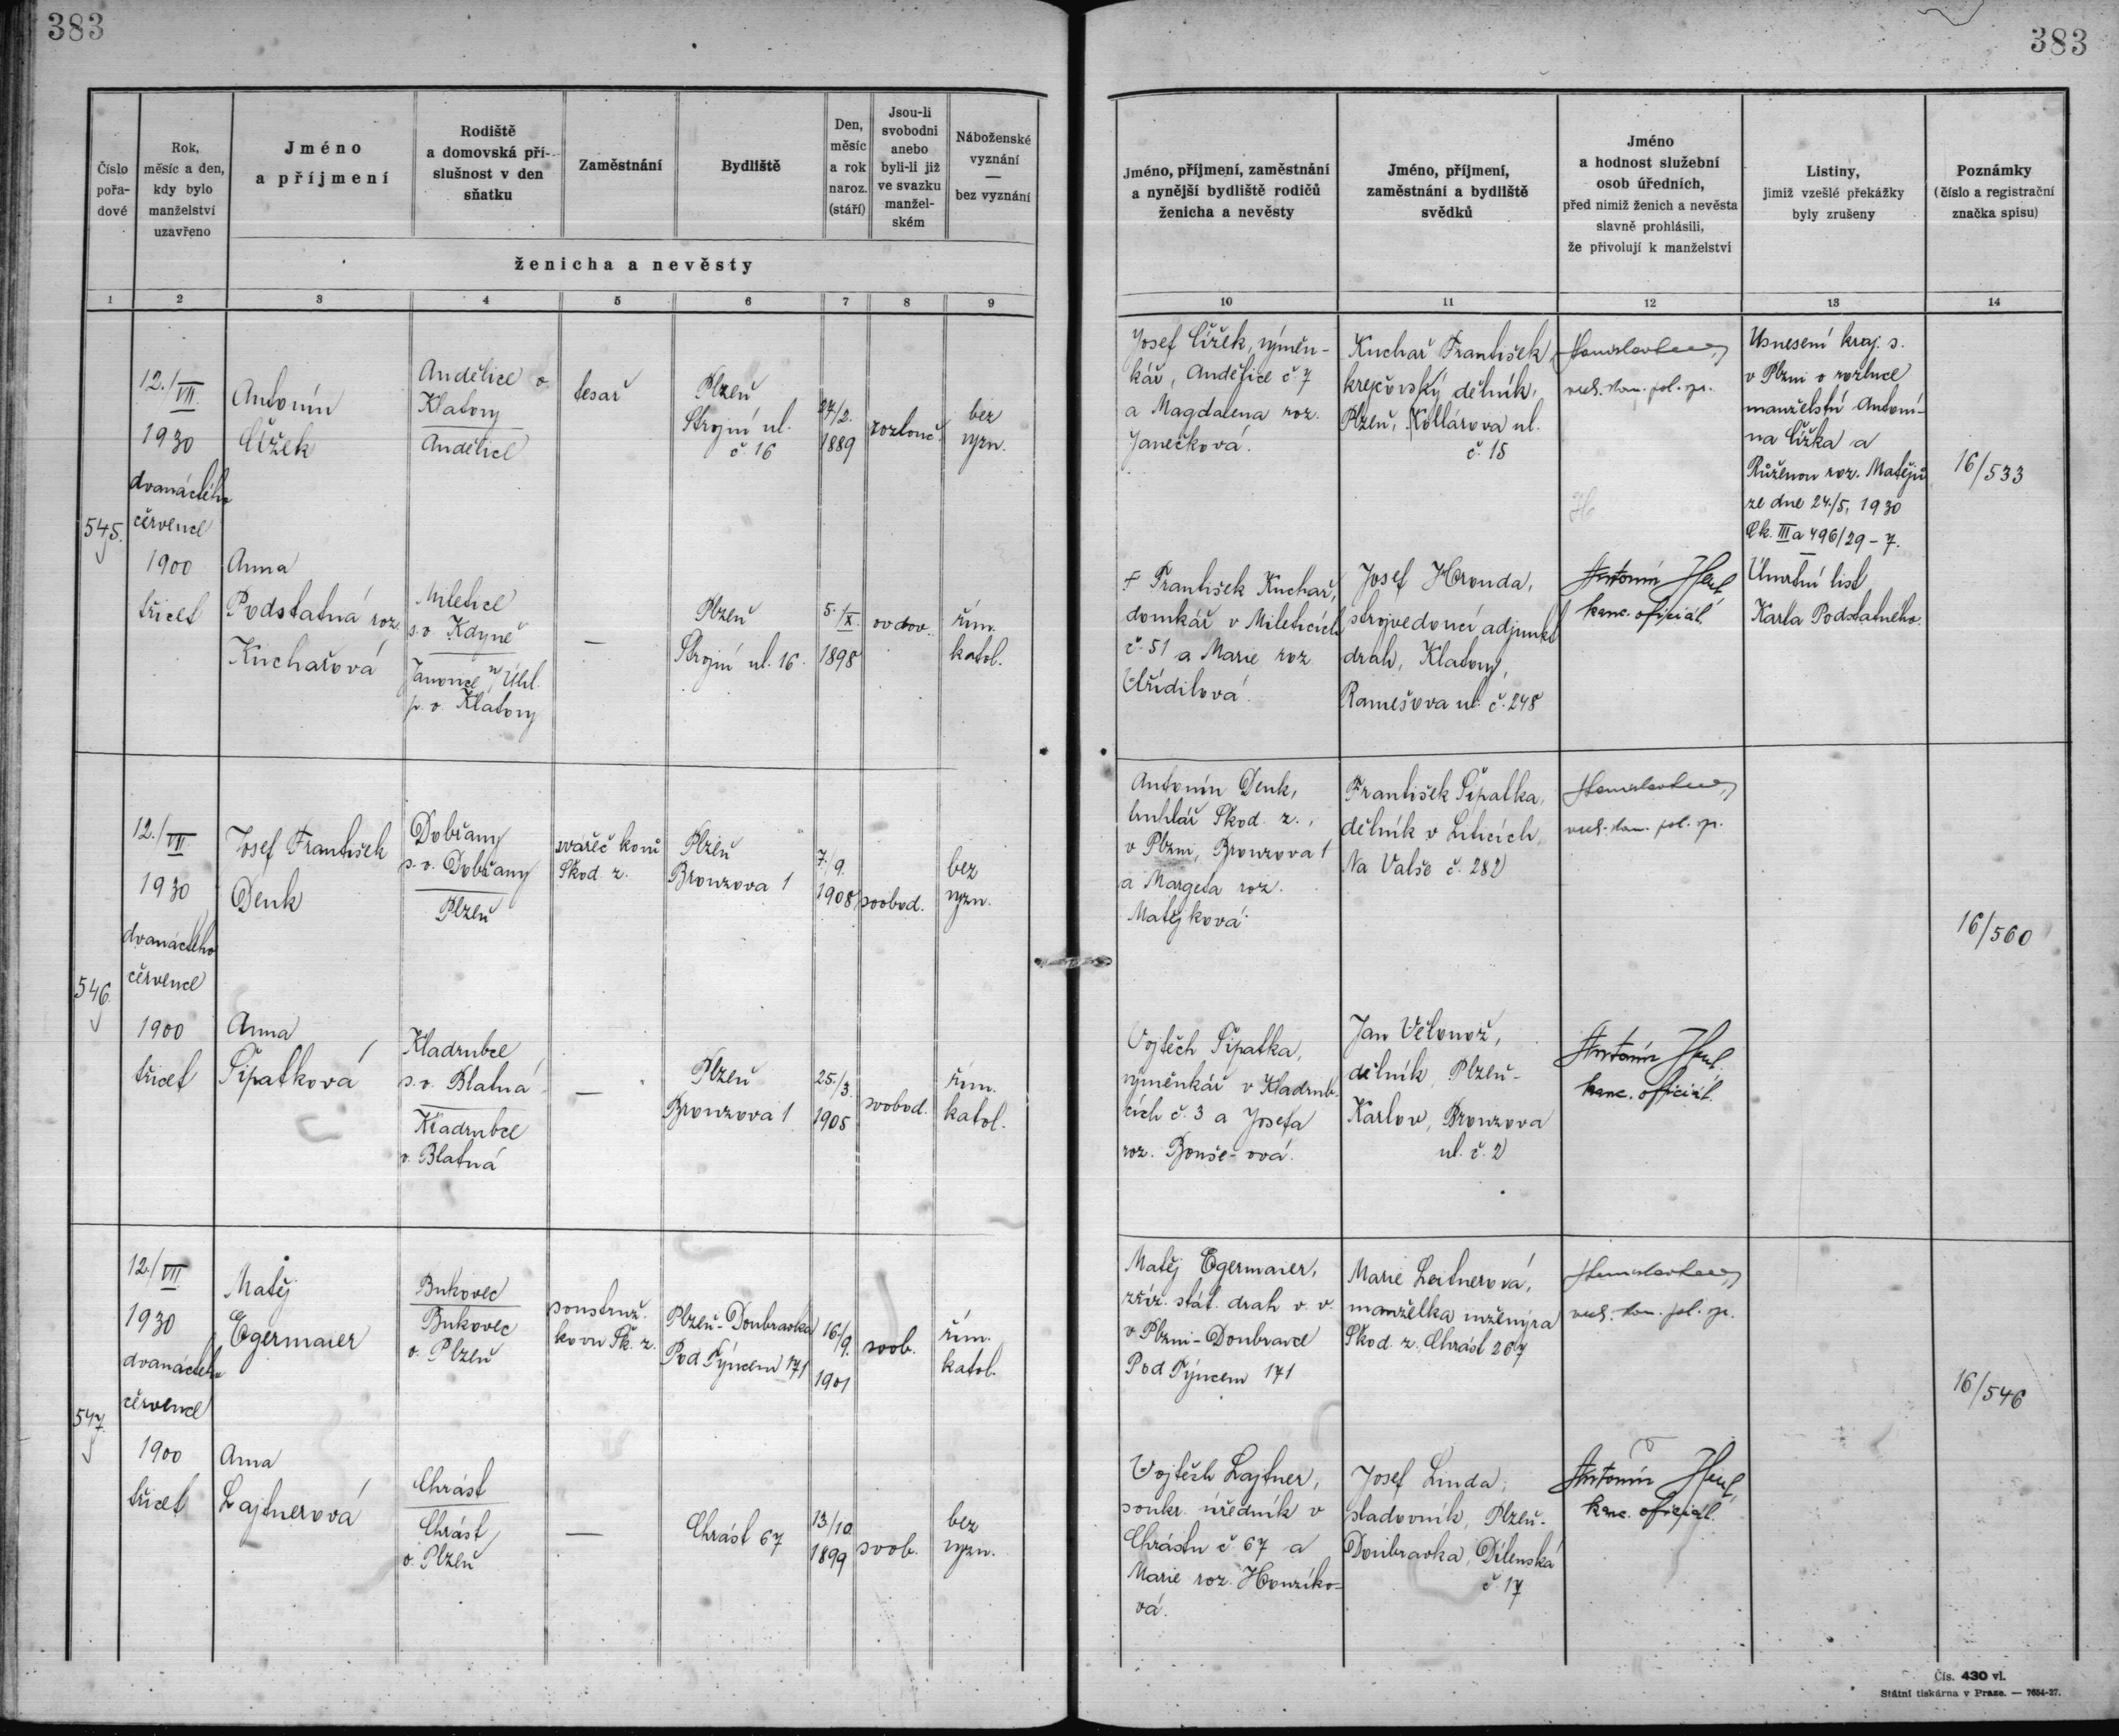 383
383
Číslo
pořa-
dové
Rok,
měsíc a den,
kdy bylo
manželství
uzavřeno
Jméno
a příjmení
Rodiště
a domovská pří-
slušnost v den
sňatku
Zaměstnání
Bydliště
Den,
měsíc
a rok
naroz.
(stáří)
Jsou-li
svobodni
anebo
byli-li již
ve svazku
manžel-
ském
Náboženské
vyznání
—
bez vyznání
ženicha a nevěsty
Jméno, příjmení, zaměstnání
a nynější bydliště rodičů
ženicha a nevěsty
Jméno, příjmení,
zaměstnání a bydliště
svědků
Jméno
a hodnost služební
osob úředních,
před nimiž ženich a nevěsta
slavně prohlásili,
že přivolují k manželství
Listiny,
jimiž vzešlé překážky
byly zrušeny
Poznámky
(číslo a registrační
značka spisu)
1 2 3 4 5 6 7 8 9
10 11 12 13 14
545.
12./VII.
1930
dvanáctého
července
1900
třicet
Antonín
Čížek
Andělice o.
Klatovy
Andělice
tesař
Plzeň
Strojní ul.
č. 16
27/2.
1889
rozlouč.
bez
vyzn.
Josef Čížek, výměn-
kář, Andělice č. 7
a Magdalena roz.
Janečková.
Kuchař František
krejčovský dělník,
Plzeň, Kollárova ul.
č. 15
Usnesení kraj. s.
v Plzni o rozluce
manželství Antoní-
na Čížka a
Růženou roz. Matějů
ze dne 24./5. 1930
Čk. III a 496/29-7.
16/533
Anna
Podstatná roz.
Kuchařová
Miletice
s. o. Kdyně
Janovice n/Úhl.
p. o. Klatovy
—
Plzeň
Strojní ul. 16.
5./IX.
1898
ovdov.
řím.
katol.
† František Kuchař,
domkář v Mileticích
č. 51 a Marie roz.
Uřídilová.
Josef Hronda,
strojvedoucí adjunkt
drah, Klatovy,
ul. č. 248
Antonín
kanc. oficiál.
Úmrtní list
Karla Podstatného.
546.
12./VII
1930
dvanáctého
července
1900
třicet
Josef František
Denk
Dobřany
s. o. Dobřany
Plzeň
svářeč kovů
Škod. z.
Plzeň
Bronzova 1
7./9.
1908
svobod.
bez
vyzn.
Antonín Denk,
truhlář Škod. z.,
v Plzni, Bronzova 1
a Margeta roz.
Matějková.
František Šipatka,
dělník v Liticích,
Na Valše č. 282
16/560
Anna
Šipatková
Kladrubce
s. o. Blatná
Kladrubce
o. Blatná
—
Plzeň
Bronzova 1
25./3.
1905
svobod.
řím.
katol.
Vojtěch Šipatka,
výměnkář v Kladrub-
cích č. 3 a Josefa
roz. Bouše-ová.
Jan Větonož,
dělník, Plzeň-
Karlov, Bronzova
ul. č. 2
Antonín
kanc. oficiál.
547.
12./VII
1930
dvanáctého
července
1900
třicet
Matěj
Egermaier
Bukovec
Bukovec
o. Plzeň
soustruž.
kovu Šk. z.
Plzeň-Doubravka
Pod Týncem 171
16/9.
1901
svob.
řím.
katol.
Matěj Egermaier,
zříz. stát. drah v. v.
v Plzni-Doubravce
Pod Týncem 171
Marie Leitnerová,
manželka inženýra
Škod. z. Chrást 267
16/546
Anna
Lajtnerová
Chrást
Chrást
o. Plzeň
—
Chrást 67
13/10.
1899
svob.
bez
vyzn.
Vojtěch Lajtner,
soukr. úředník v
Chrástu č. 67 a
Marie roz. Houzíko-
vá.
Josef Linda,
sladovník, Plzeň-
Doubravka, Dílenská
č. 17
Antonín
kanc. oficiál.
Čís. 430 vl.
Státní tiskárna v Praze. — 7654-27.